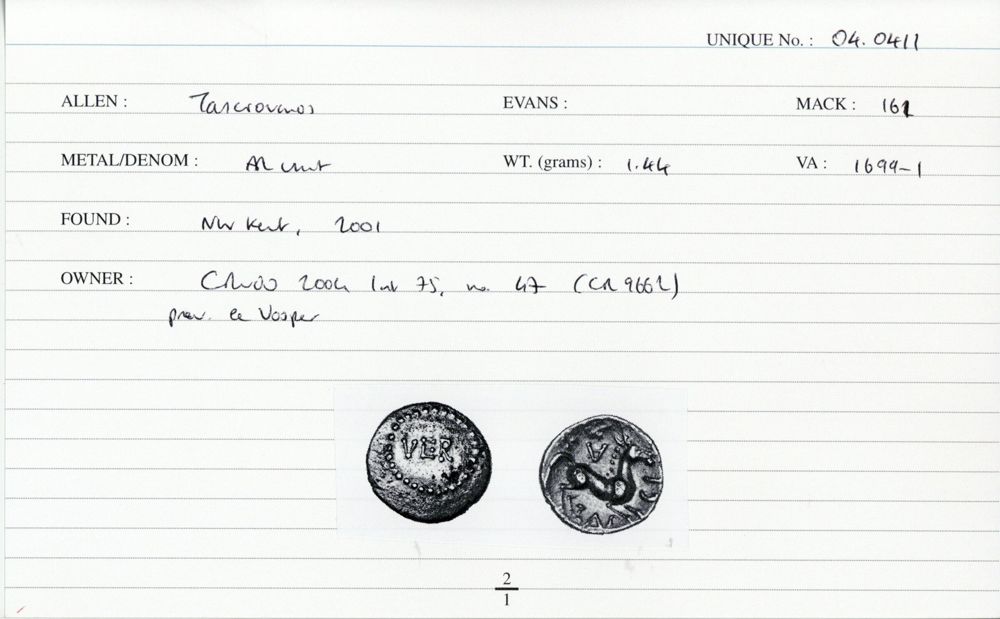 UNIQUE No. : 04.0411
ALLEN : Tasciovanos EVANS : MACK : 161
METAL/DENOM : AR unit WT. (grams) : 1.44 VA : 1699-1
FOUND : NW Kent, 2001
OWNER : 2004 list 75, no. 47 (CR 9662)
prev. Vosper
VER
2
1